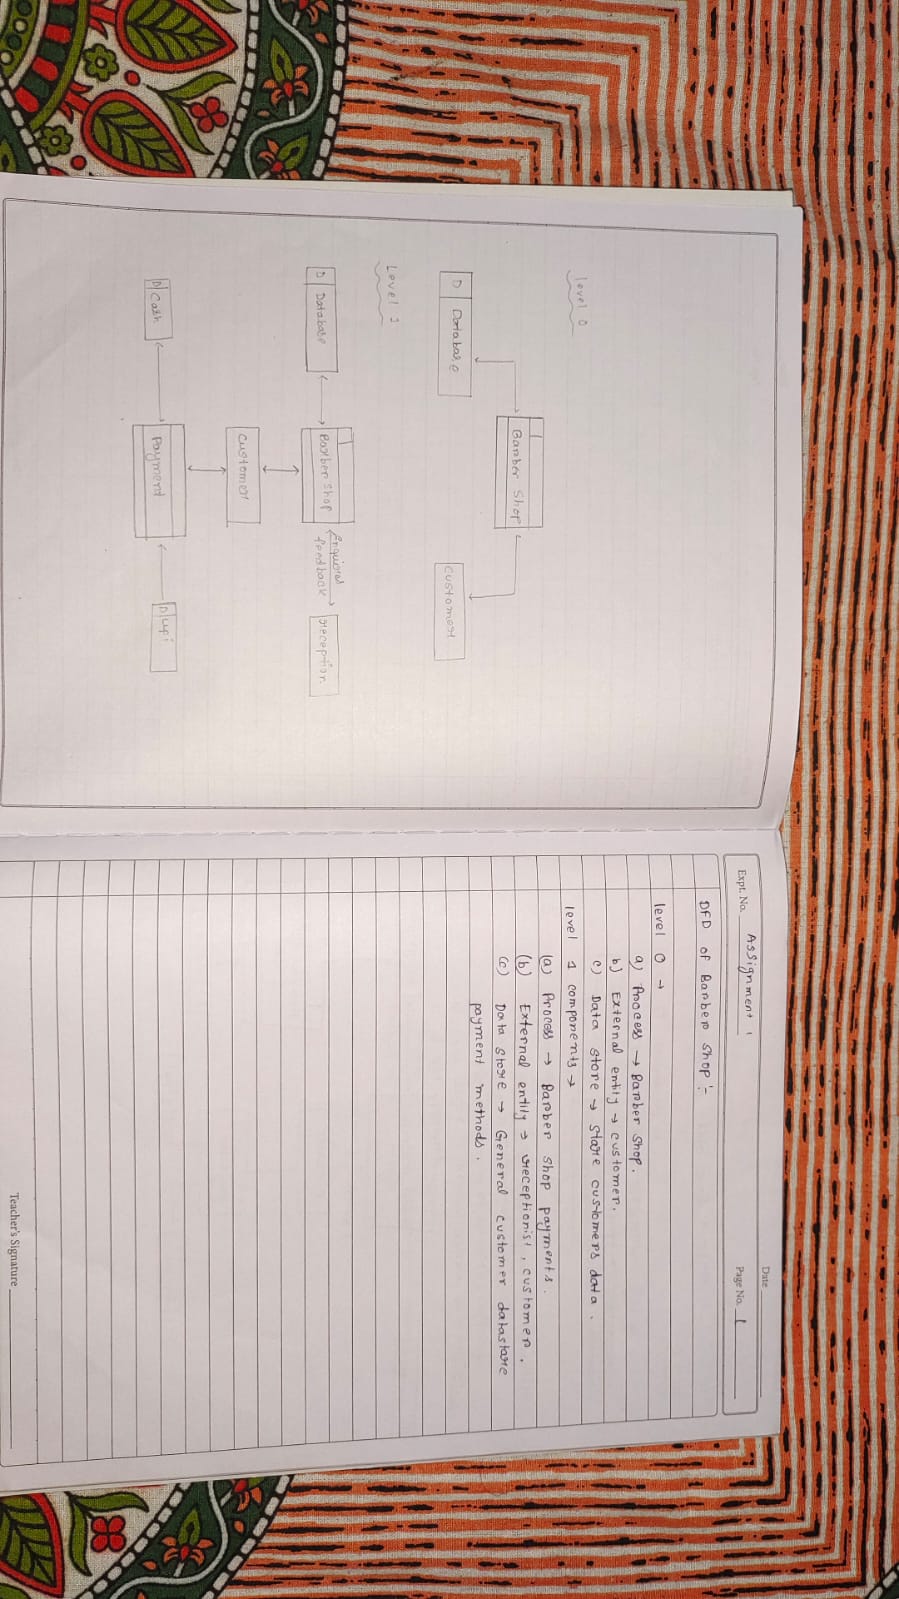 level 0
1
Barber Shop
D Database
customer
Level 1
1
Barber Shop
D Database
Enquires
feedback
reception
customer
Payment
D Cash
D upi
Date
Expt. No. Assignment 1
Page No. 1
DFD of Barber Shop :-
level 0 →
a) Process → Barber Shop.
b) External entity → customer.
c) Data store → store customers data .
level 1 components →
(a) Process → Barber shop payments .
(b) External entity → receptionist , customer .
(c) Data store → General customer datastore
payment methods .
Teacher's Signature